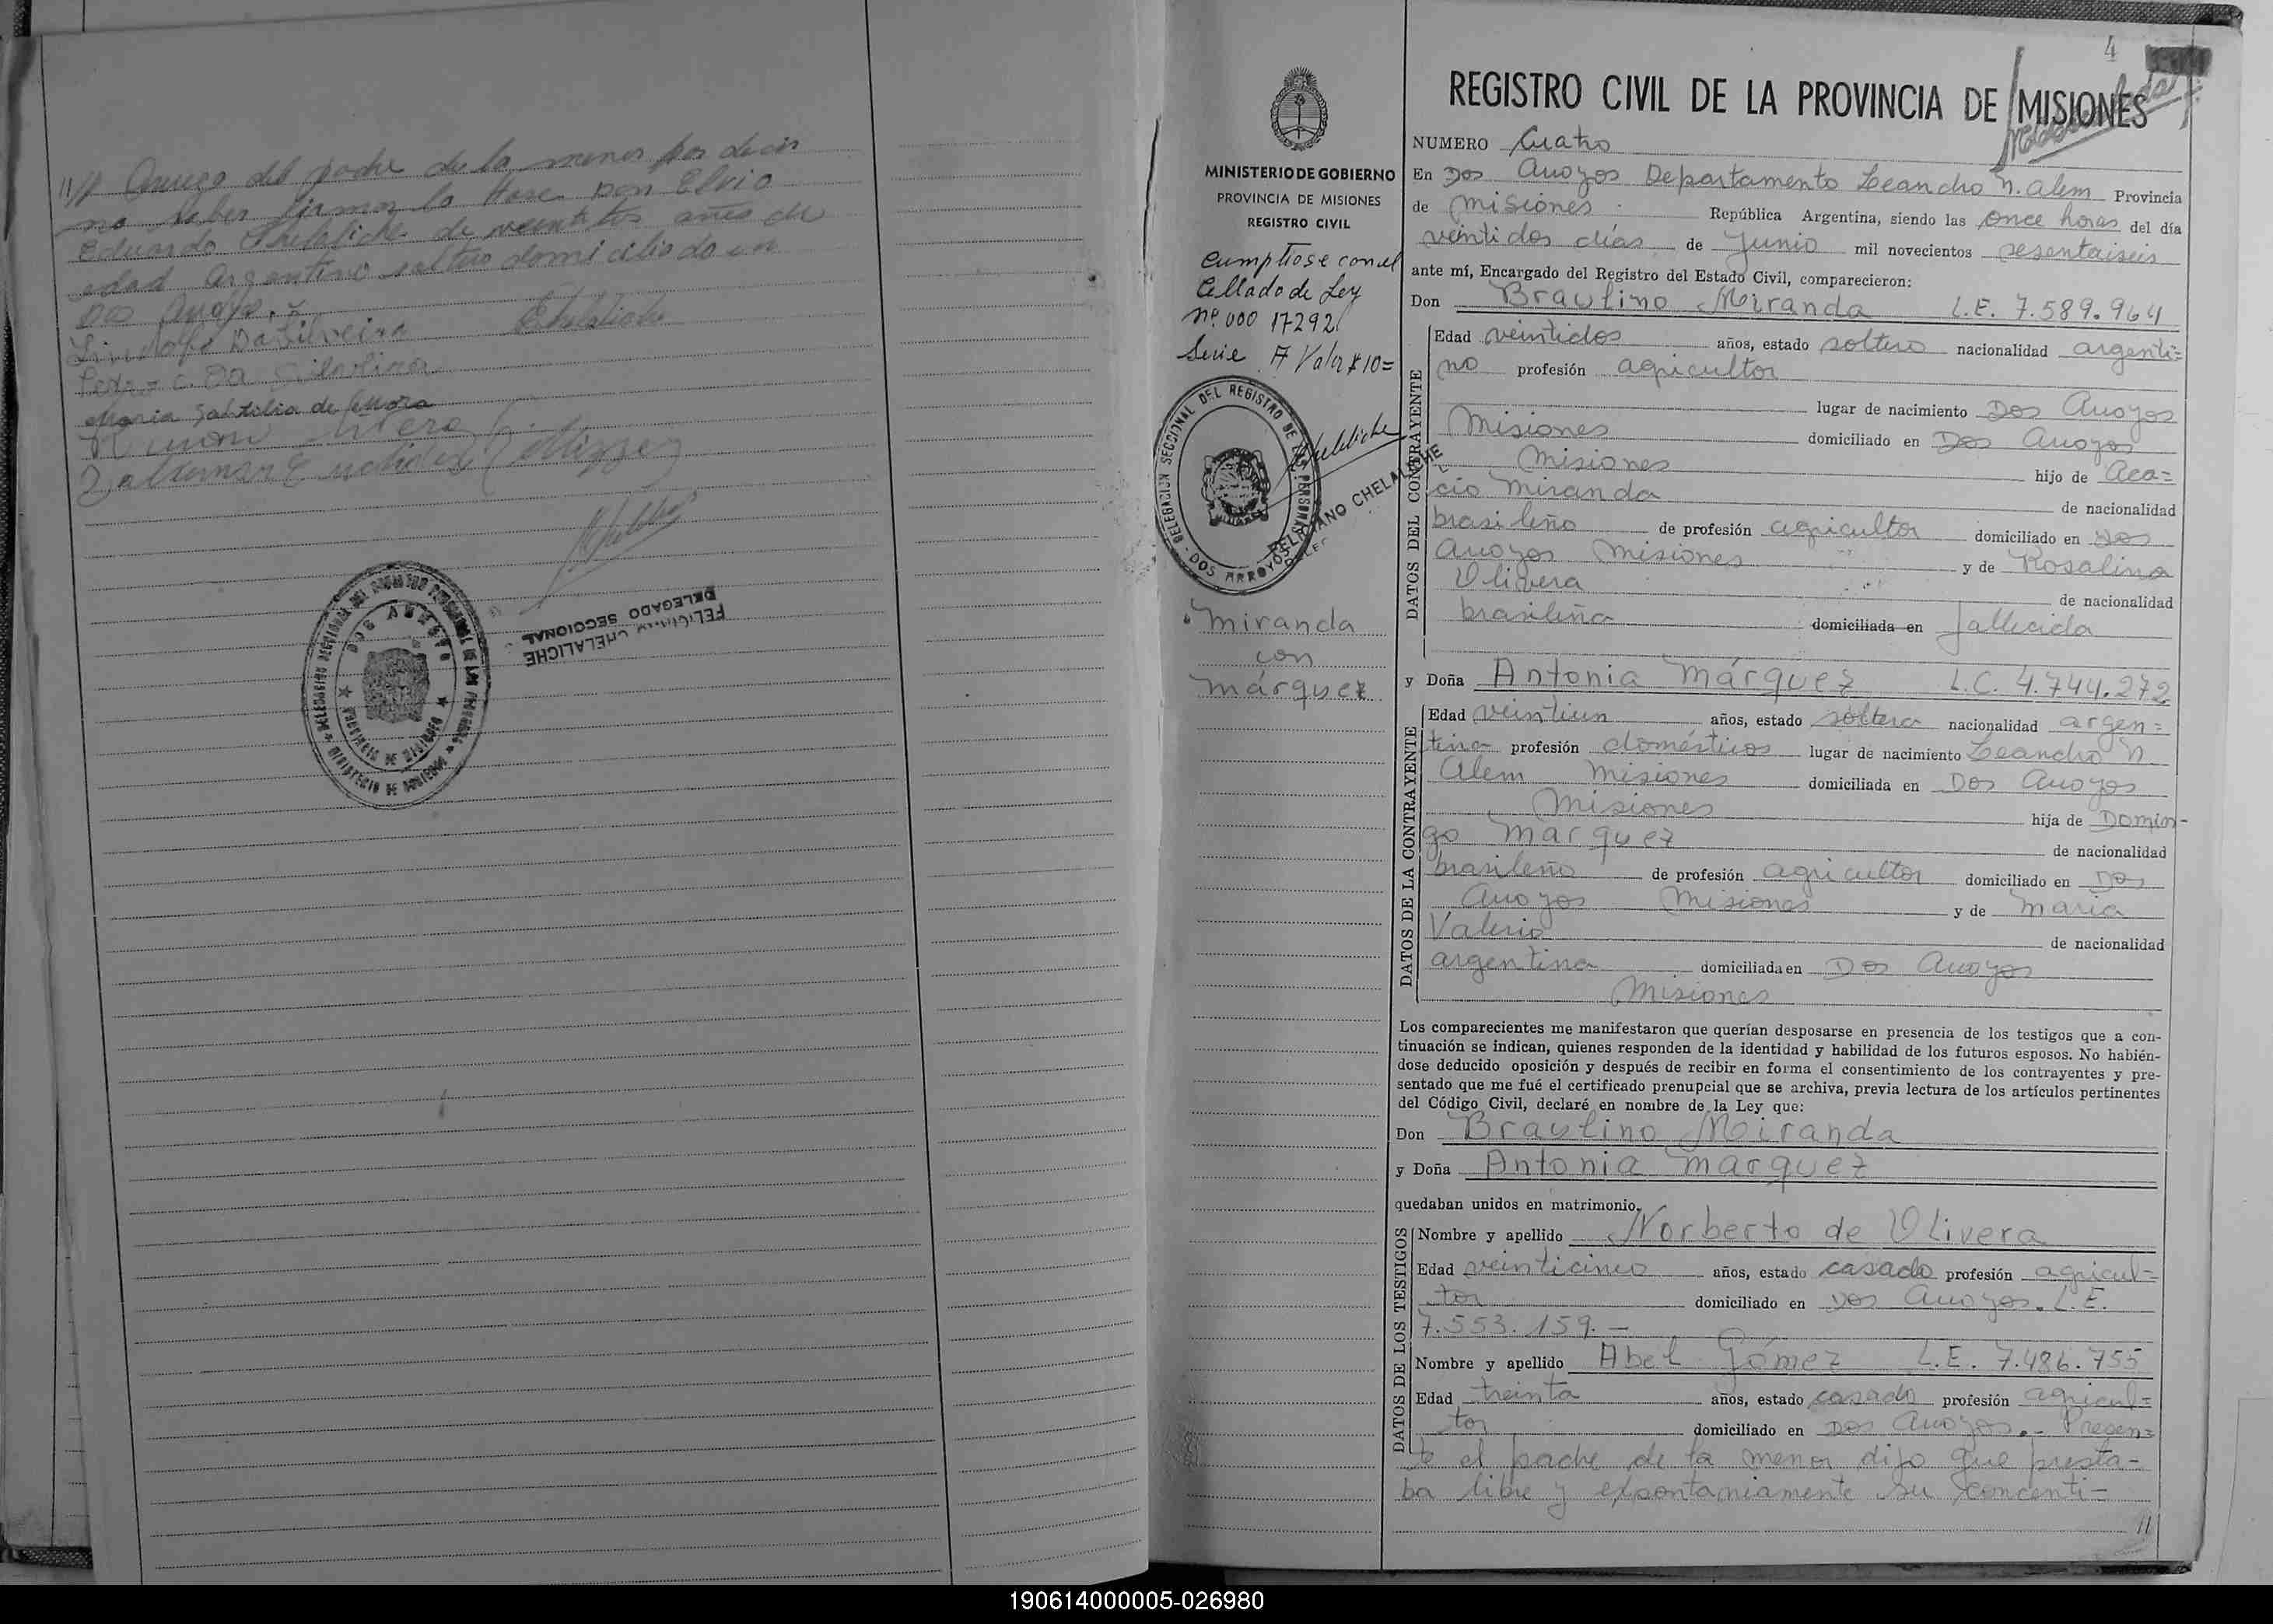 11// Aruego del padre de la menor por decir
no saber firmar lo hase Don Elvio
Eduardo Chelaliche de veintitres años de
edad argentino soltero domiciliado en
Dos Arroyos.
Lindolfo Da Silveira
Pedro C. Da
Maria de Mora
DOS ARROYOS
FELICIANO CHELALICHE
DELEGADO SECCIONAL
4
MINISTERIO DE GOBIERNO
PROVINCIA DE MISIONES
REGISTRO CIVIL
Cumpliose con el
cellado de Ley
nº 000 17292
Serie A Valor $10=
DELEGACION SECCIONAL DEL REGISTRO DE LAS PERSONAS
DOS ARROYOS
FELICIANO CHELALICHE
Miranda
con
Márquez
REGISTRO CIVIL DE LA PROVINCIA DE MISIONES
NUMERO Cuatro
En Dos Arroyos Departamento Leandro N. Alem Provincia
de Misiones República Argentina, siendo las once horas del día
veintidos días de Junio mil novecientos sesentaiseis
ante mí, Encargado del Registro del Estado Civil, comparecieron:
Don Braulino Miranda L.E. 7.589.964
DATOS DEL CONTRAYENTE
Edad veintidos años, estado soltero nacionalidad argenti=
no profesión agricultor
lugar de nacimiento Dos Arroyos
Misiones domiciliado en Dos Arroyos
Misiones hijo de Aca=
cio Miranda de nacionalidad
brasileño de profesión agricultor domiciliado en Dos
Arroyos Misiones y de Rosalina
Olivera de nacionalidad
brasileña domiciliada en fallecida
y Doña Antonia Márquez L.C. 4.744.272
DATOS DE LA CONTRAYENTE
Edad veintiun años, estado soltera nacionalidad argen=
tina profesión domésticos lugar de nacimiento Leandro N.
Alem Misiones domiciliada en Dos Arroyos
Misiones hija de Domin-
go Marquez de nacionalidad
brasileño de profesión agricultor domiciliado en Dos
Arroyos Misiones y de Maria
Valerio de nacionalidad
argentina domiciliada en Dos Arroyos
Misiones
Los comparecientes me manifestaron que querían desposarse en presencia de los testigos que a con-
tinuación se indican, quienes responden de la identidad y habilidad de los futuros esposos. No habién-
dose deducido oposición y después de recibir en forma el consentimiento de los contrayentes y pre-
sentado que me fué el certificado prenupcial que se archiva, previa lectura de los artículos pertinentes
del Código Civil, declaré en nombre de la Ley que:
Don Braulino Miranda
y Doña Antonia Marquez
quedaban unidos en matrimonio.
DATOS DE LOS TESTIGOS
Nombre y apellido Norberto de Olivera
Edad veinticinco años, estado casado profesión agricul=
tor domiciliado en Dos Arroyos. L.E.
7.553.159.—
Nombre y apellido Abel Gómez L.E. 7.486.755
Edad treinta años, estado casado profesión agricul=
tor domiciliado en Dos Arroyos.- Presen=
te el padre de la menor dijo que presta-
ba libre y expontaniamente su concenti-
//
190614000005-026980